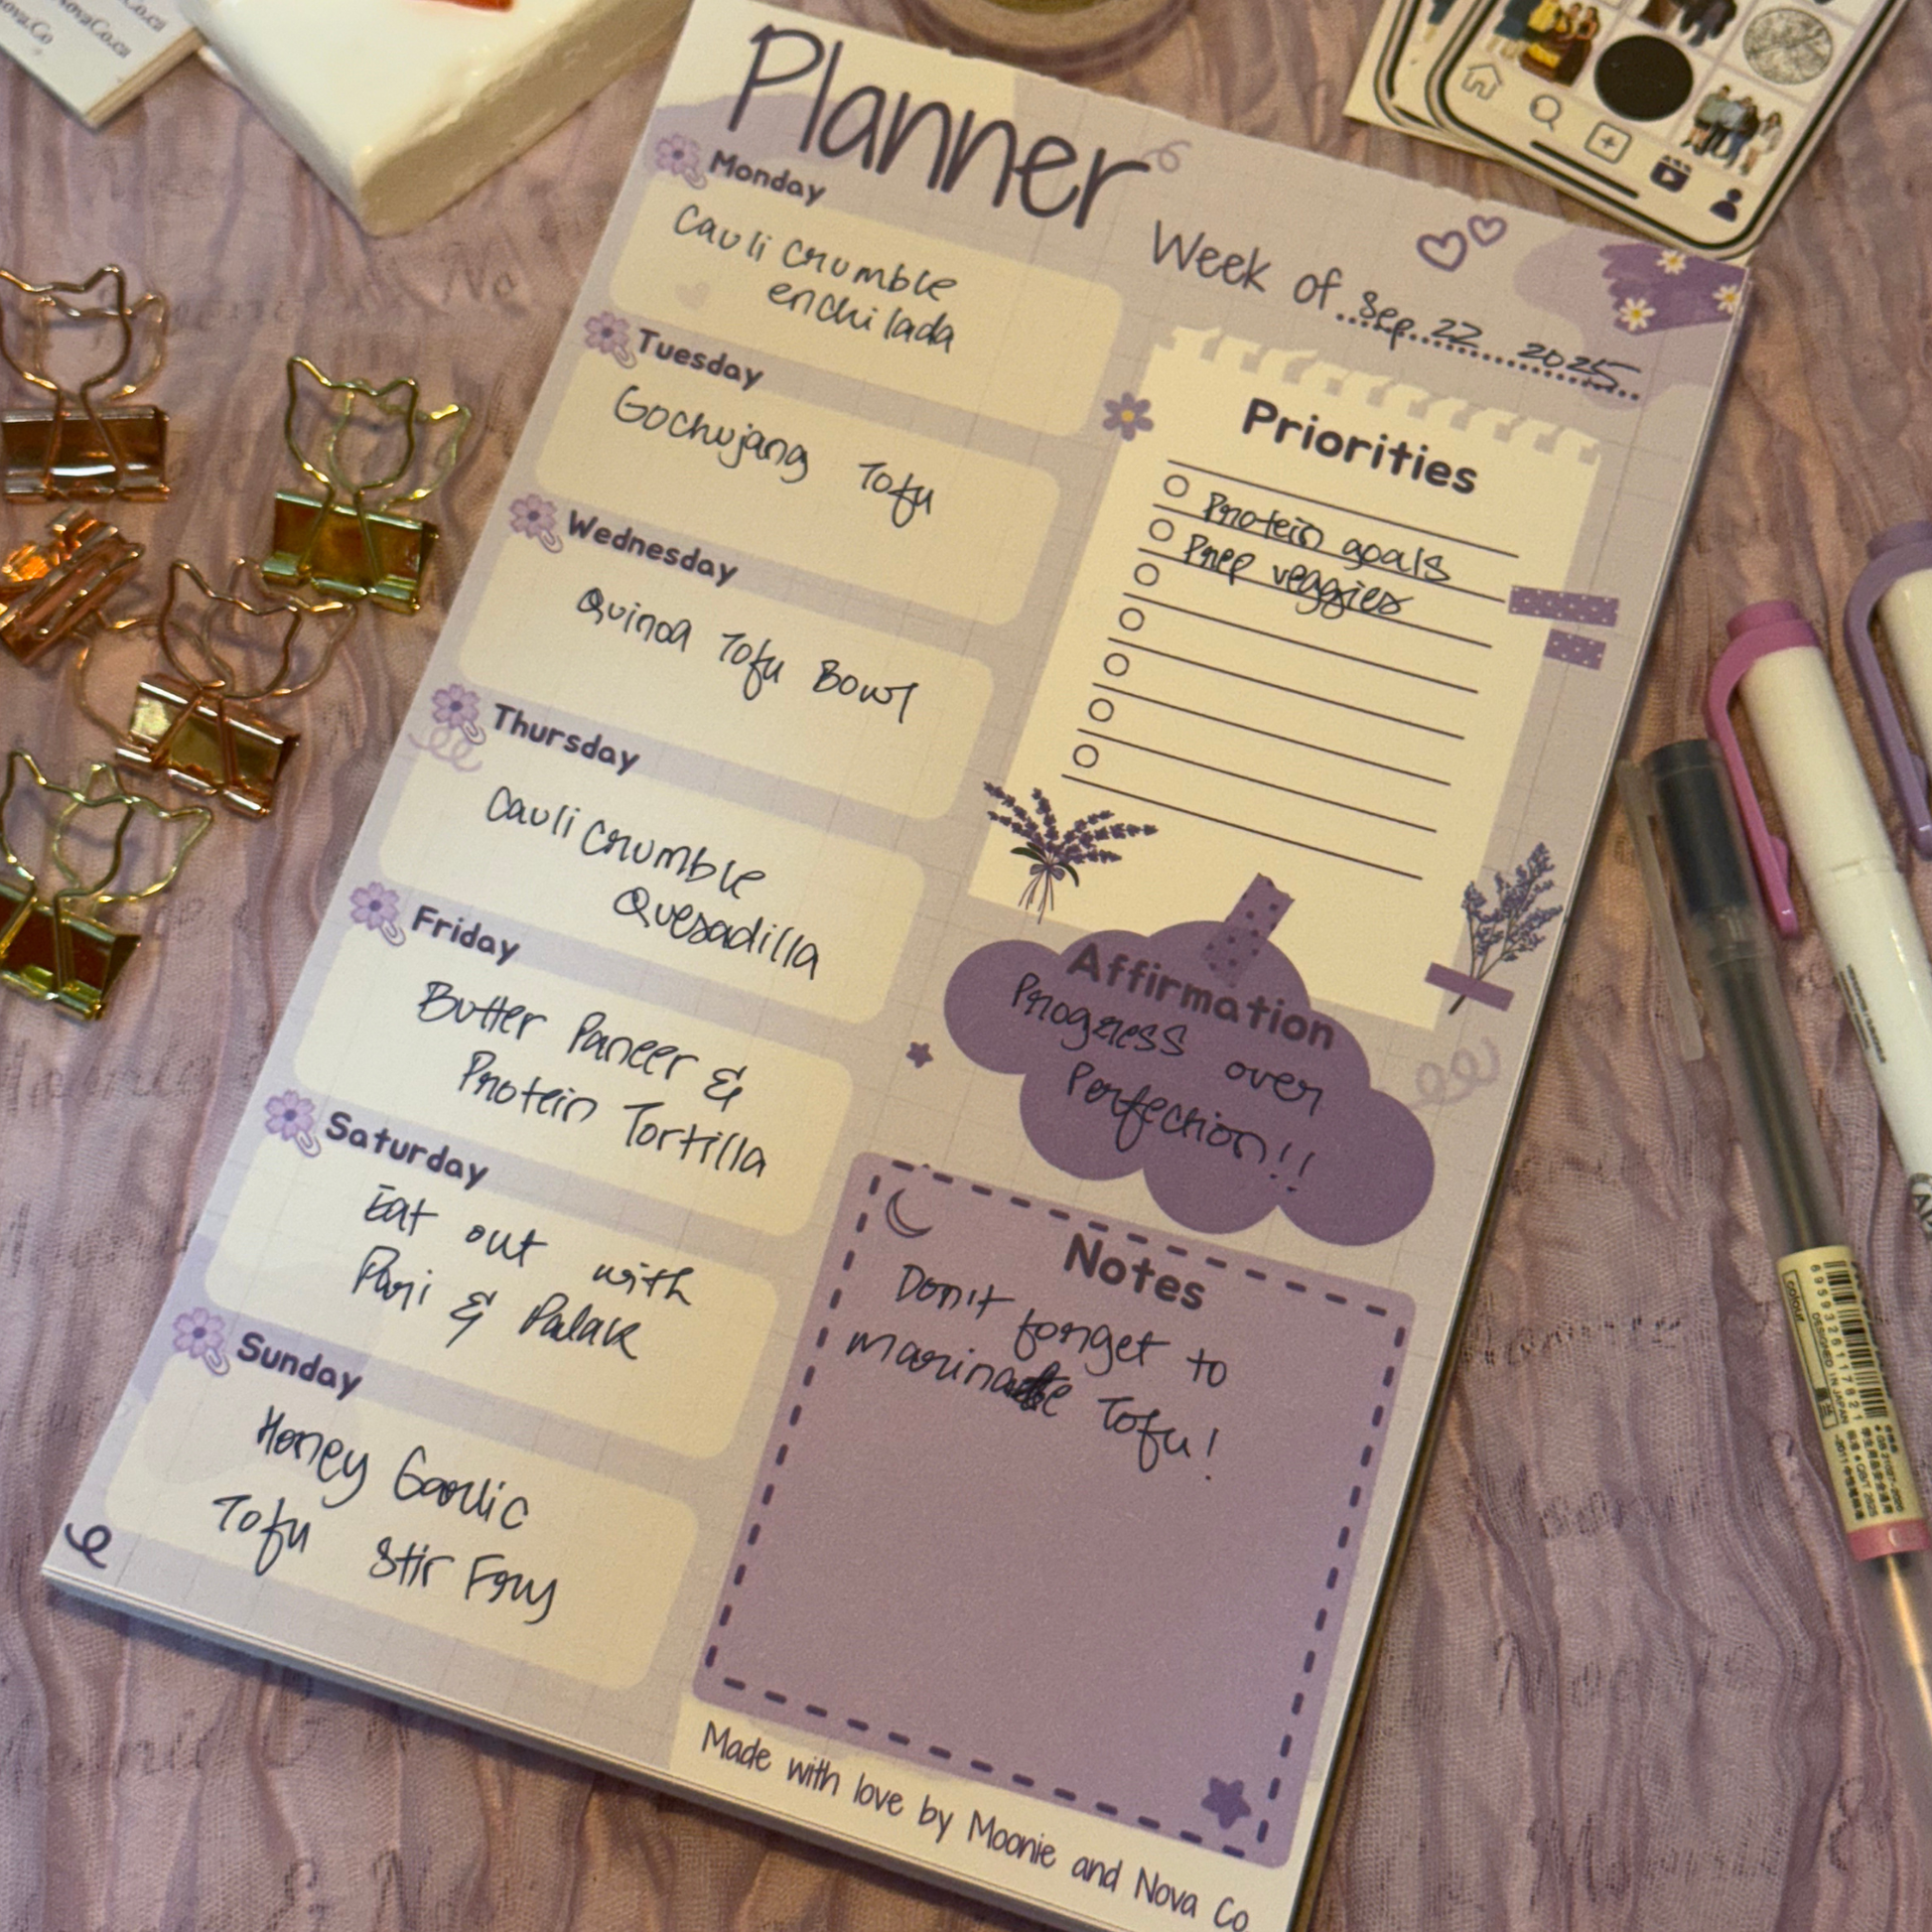 NovaCo.ca
Nova.Co
NovaCo.ca
Planner
Week of Sep 22 2025
Monday
Cauli Crumble
enchilada
Tuesday
Gochujang Tofu
Wednesday
Quinoa Tofu Bowl
Thursday
Cauli Crumble
Quesadilla
Friday
Butter Paneer &
Protein Tortilla
Saturday
Eat out with
Pari & Palak
Sunday
Honey Garlic
Tofu Stir Fry
Priorities
Protein goals
Prep veggies
Affirmation
Progress over
Perfection!!
Notes
Don't forget to
marinate Tofu!
Made with love by Moonie and Nova Co
colour
DESIGNED IN JAPAN
6959326117821